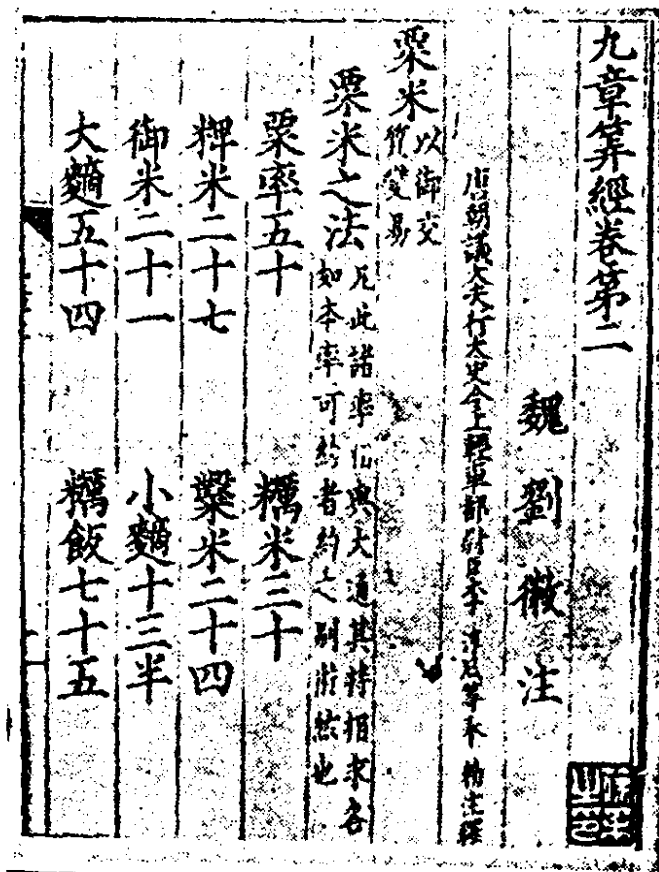 九章筭經卷第二
魏劉徽注
唐朝議大夫行太史令上輕車都尉臣李淳風等奉勑注釋
粟米以御交質變易
粟米之法凡此諸率相與大通其特相求各如本率可約者約之別術然也
粟率五十　糲米三十
粺米二十七　糳米二十四
御米二十一　小䵂十三半
大䵂五十四　糲飯七十五